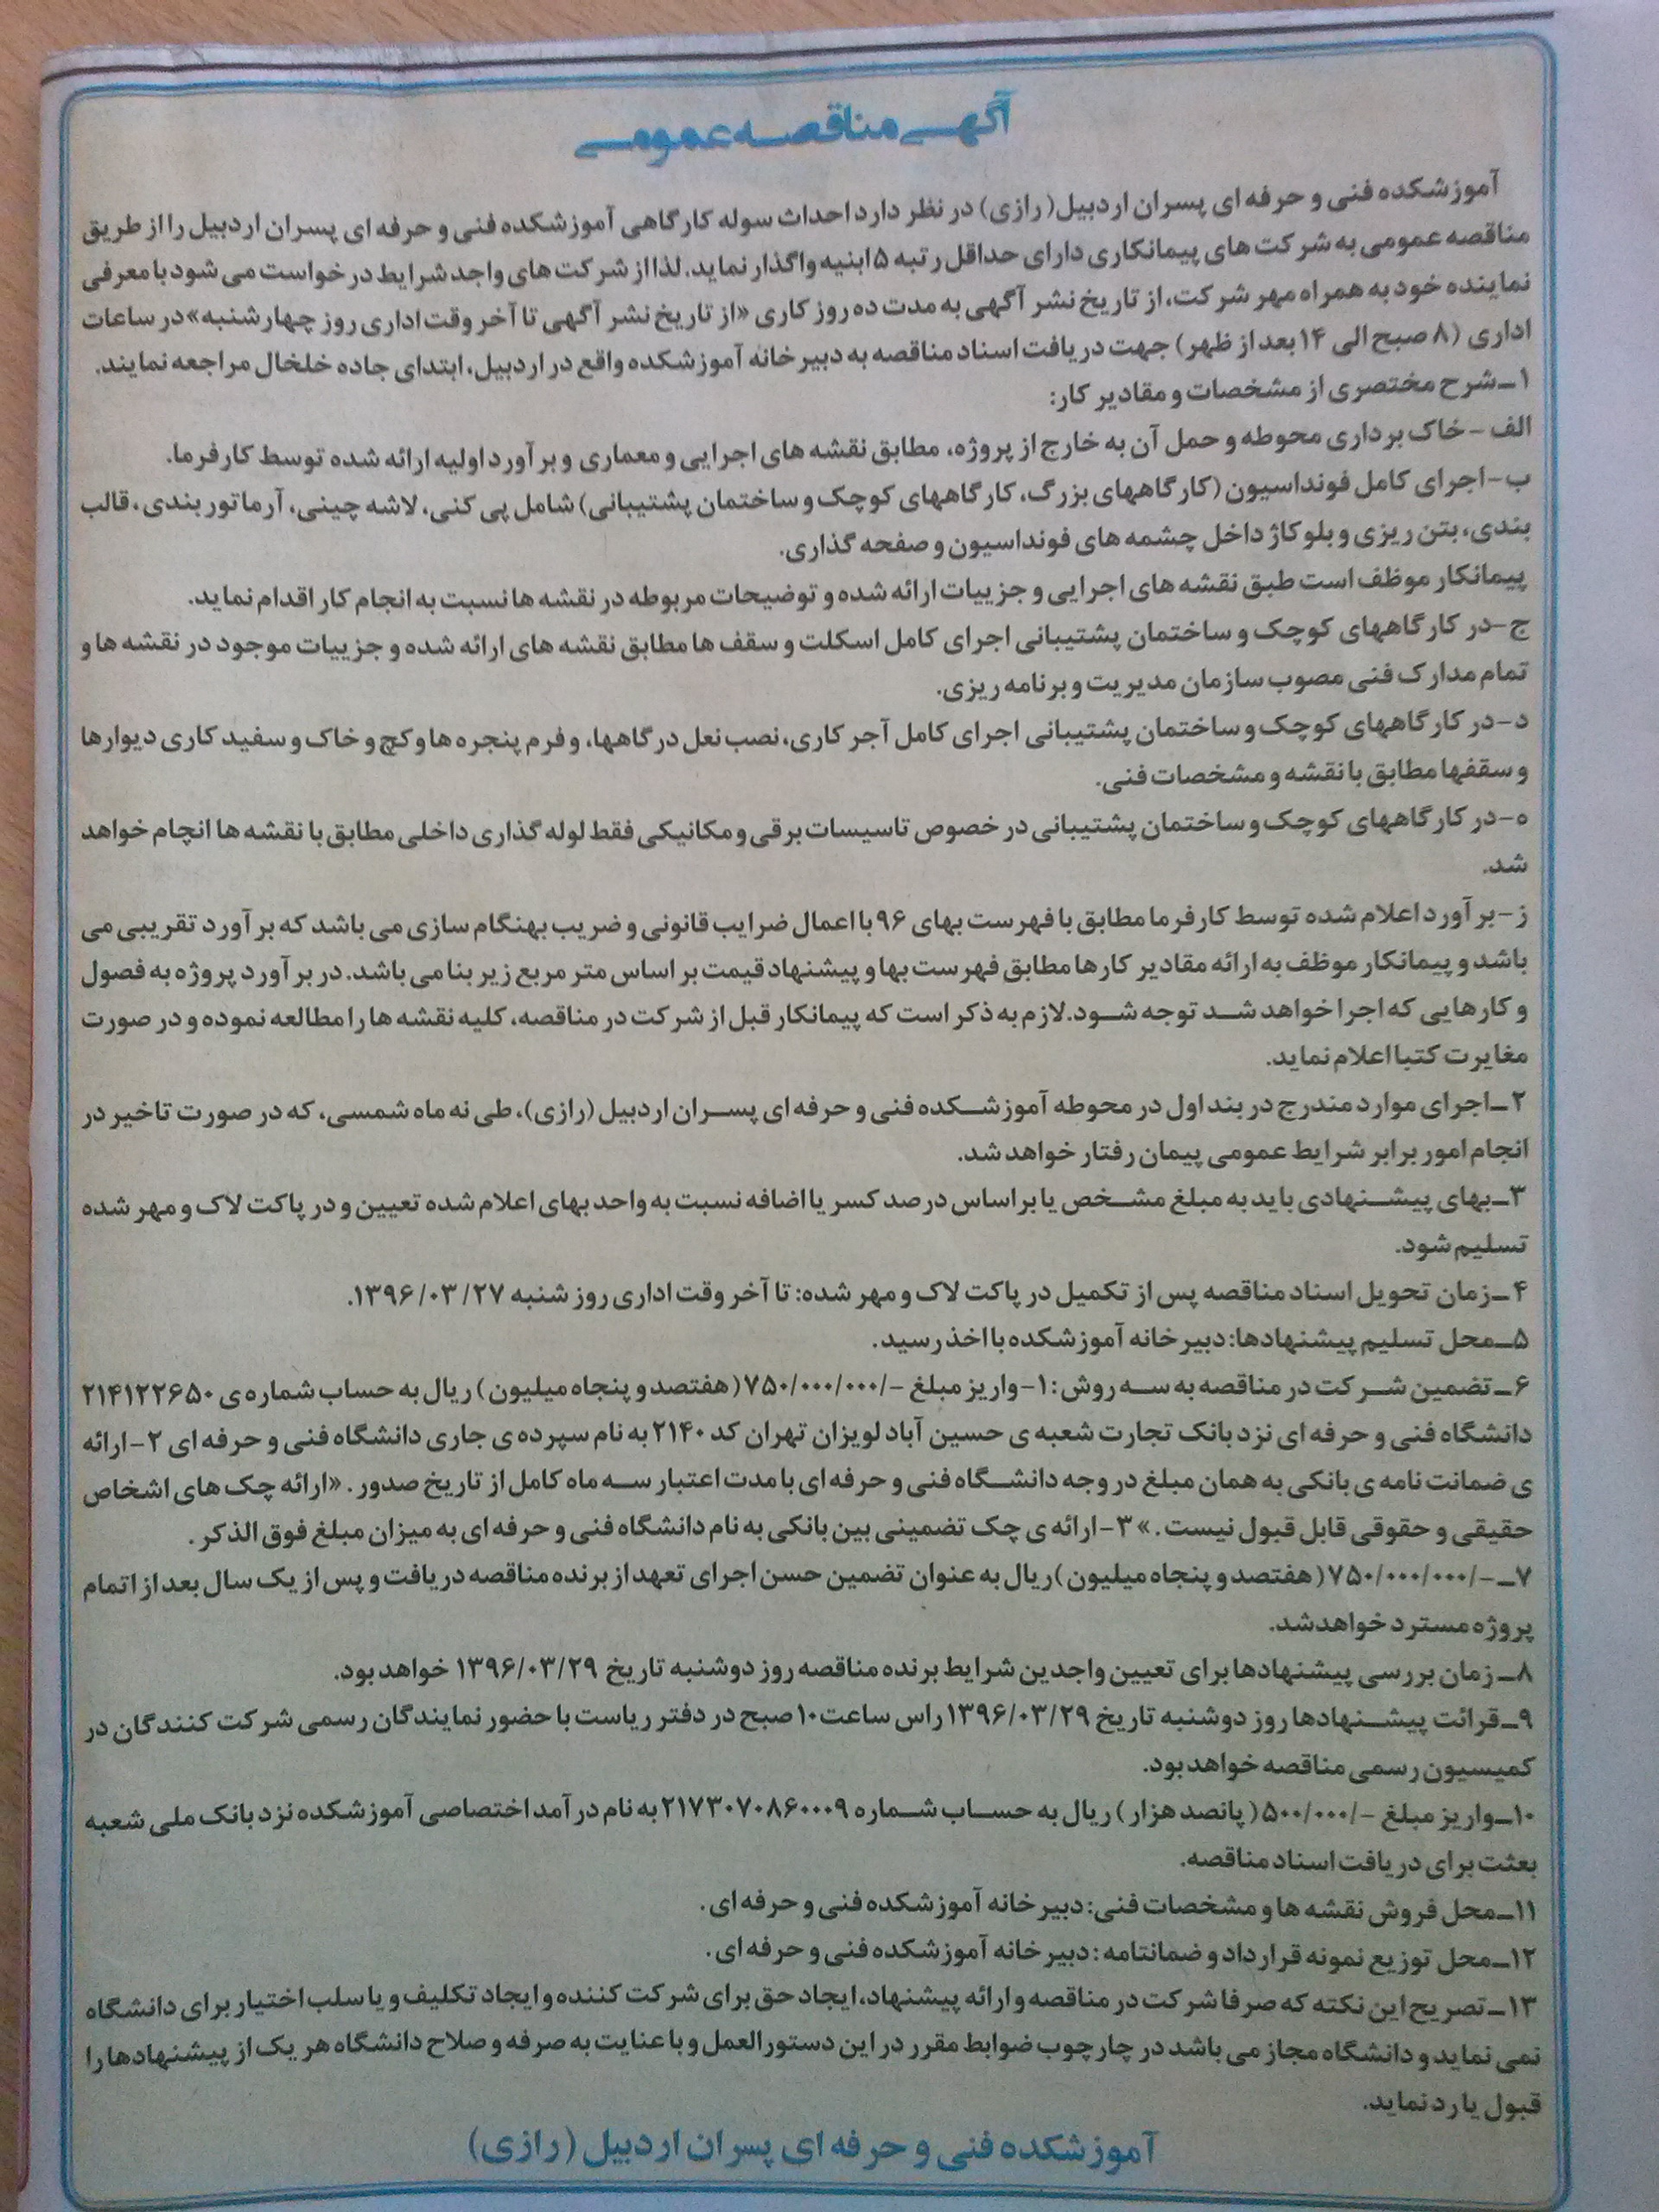 آگهی مناقصه عمومی
آموزشکده فنی و حرفه ای پسران اردبیل(رازی) در نظر دارد احداث سوله کارگاهی آموزشکده فنی و حرفه ای پسران اردبیل را از طریق
مناقصه عمومی به شرکت های پیمانکاری دارای حداقل رتبه ۵ ابنیه واگذار نماید. لذا از شرکت های واجد شرایط درخواست می شود با معرفی
نماینده خود به همراه مهر شرکت، از تاریخ نشر آگهی به مدت ده روز کاری «از تاریخ نشر آگهی تا آخر وقت اداری روز چهارشنبه» در ساعات
اداری (۸ صبح الی ۱۴ بعد از ظهر) جهت دریافت اسناد مناقصه به دبیرخانه آموزشکده واقع در اردبیل، ابتدای جاده خلخال مراجعه نمایند.
۱ـ شرح مختصری از مشخصات و مقادیر کار:
الف - خاک برداری محوطه و حمل آن به خارج از پروژه، مطابق نقشه های اجرایی و معماری و برآورد اولیه ارائه شده توسط کارفرما.
ب- اجرای کامل فونداسیون (کارگاههای بزرگ، کارگاههای کوچک و ساختمان پشتیبانی) شامل پی کنی، لاشه چینی، آرماتوربندی، قالب
بندی، بتن ریزی و بلوکاژ داخل چشمه های فونداسیون و صفحه گذاری.
پیمانکار موظف است طبق نقشه های اجرایی و جزییات ارائه شده و توضیحات مربوطه در نقشه ها نسبت به انجام کار اقدام نماید.
ج- در کارگاههای کوچک و ساختمان پشتیبانی اجرای کامل اسکلت و سقف ها مطابق نقشه های ارائه شده و جزییات موجود در نقشه ها و
تمام مدارک فنی مصوب سازمان مدیریت و برنامه ریزی.
د- در کارگاههای کوچک و ساختمان پشتیبانی اجرای کامل آجرکاری، نصب نعل درگاهها، و فرم پنجره ها و گچ و خاک و سفید کاری دیوارها
و سقفها مطابق با نقشه و مشخصات فنی.
ه- در کارگاههای کوچک و ساختمان پشتیبانی در خصوص تاسیسات برقی و مکانیکی فقط لوله گذاری داخلی مطابق با نقشه ها انجام خواهد
شد.
ز- برآورد اعلام شده توسط کارفرما مطابق با فهرست بهای ۹۶ با اعمال ضرایب قانونی و ضریب بهنگام سازی می باشد که برآورد تقریبی می
باشد و پیمانکار موظف به ارائه مقادیر کارها مطابق فهرست بها و پیشنهاد قیمت بر اساس متر مربع زیربنا می باشد. در برآورد پروژه به فصول
و کارهایی که اجرا خواهد شد توجه شود. لازم به ذکر است که پیمانکار قبل از شرکت در مناقصه، کلیه نقشه ها را مطالعه نموده و در صورت
مغایرت کتبا اعلام نماید.
۲ـ اجرای موارد مندرج در بند اول در محوطه آموزشکده فنی و حرفه ای پسران اردبیل (رازی)، طی نه ماه شمسی، که در صورت تاخیر در
انجام امور برابر شرایط عمومی پیمان رفتار خواهد شد.
۳ـ بهای پیشنهادی باید به مبلغ مشخص یا بر اساس درصد کسر یا اضافه نسبت به واحد بهای اعلام شده تعیین و در پاکت لاک و مهر شده
تسلیم شود.
۴ـ زمان تحویل اسناد مناقصه پس از تکمیل در پاکت لاک و مهر شده: تا آخر وقت اداری روز شنبه ۱۳۹۶/۰۳/۲۷.
۵ـ محل تسلیم پیشنهادها: دبیرخانه آموزشکده با اخذ رسید.
۶ـ تضمین شرکت در مناقصه به سه روش: ۱- واریز مبلغ -/۷۵۰/۰۰۰/۰۰۰ (هفتصد و پنجاه میلیون) ریال به حساب شماره ی ۲۱۴۱۲۲۶۵۰
دانشگاه فنی و حرفه ای نزد بانک تجارت شعبه ی حسین آباد لویزان تهران کد ۲۱۴۰ به نام سپرده ی جاری دانشگاه فنی و حرفه ای ۲- ارائه
ی ضمانت نامه ی بانکی به همان مبلغ در وجه دانشگاه فنی و حرفه ای با مدت اعتبار سه ماه کامل از تاریخ صدور. «ارائه چک های اشخاص
حقیقی و حقوقی قابل قبول نیست.» ۳- ارائه ی چک تضمینی بین بانکی به نام دانشگاه فنی و حرفه ای به میزان مبلغ فوق الذکر.
۷ـ -/۷۵۰/۰۰۰/۰۰۰ (هفتصد و پنجاه میلیون) ریال به عنوان تضمین حسن اجرای تعهد از برنده مناقصه دریافت و پس از یک سال بعد از اتمام
پروژه مسترد خواهد شد.
۸ـ زمان بررسی پیشنهادها برای تعیین واجدین شرایط برنده مناقصه روز دوشنبه تاریخ ۱۳۹۶/۰۳/۲۹ خواهد بود.
۹ـ قرائت پیشنهادها روز دوشنبه تاریخ ۱۳۹۶/۰۳/۲۹ راس ساعت ۱۰ صبح در دفتر ریاست با حضور نمایندگان رسمی شرکت کنندگان در
کمیسیون رسمی مناقصه خواهد بود.
۱۰ـ واریز مبلغ -/۵۰۰/۰۰۰ (پانصد هزار) ریال به حساب شماره ۲۱۷۳۰۷۰۸۶۰۰۰۹ به نام درآمد اختصاصی آموزشکده نزد بانک ملی شعبه
بعثت برای دریافت اسناد مناقصه.
۱۱ـ محل فروش نقشه ها و مشخصات فنی: دبیرخانه آموزشکده فنی و حرفه ای.
۱۲ـ محل توزیع نمونه قرارداد و ضمانتامه: دبیرخانه آموزشکده فنی و حرفه ای.
۱۳ـ تصریح این نکته که صرفا شرکت در مناقصه و ارائه پیشنهاد، ایجاد حق برای شرکت کننده و ایجاد تکلیف و یا سلب اختیار برای دانشگاه
نمی نماید و دانشگاه مجاز می باشد در چارچوب ضوابط مقرر در این دستورالعمل و با عنایت به صرفه و صلاح دانشگاه هر یک از پیشنهادها را
قبول یا رد نماید.
آموزشکده فنی و حرفه ای پسران اردبیل (رازی)